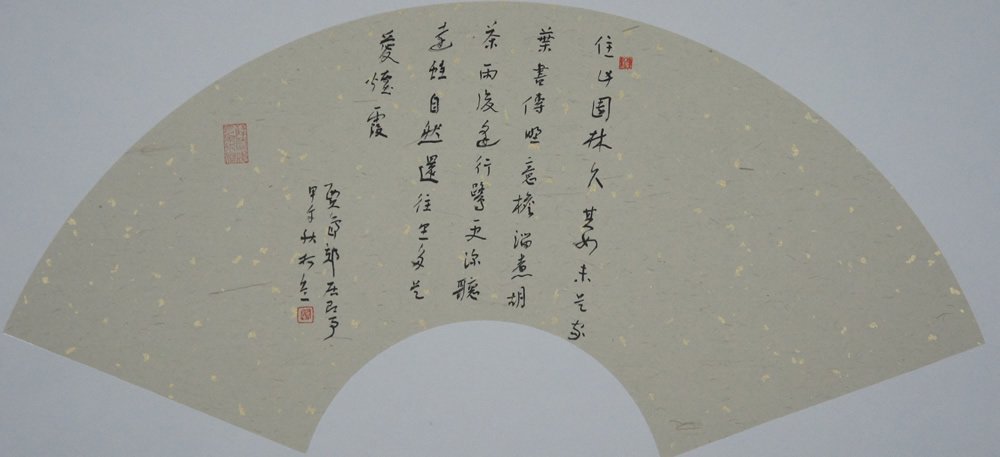 住此園林久其如未是家
葉書傳野意檐溜煮胡
茶雨後逢行鷺更深聽
遠蛙自然還往里多是
愛煙霞
賈島郊居即事
甲午秋